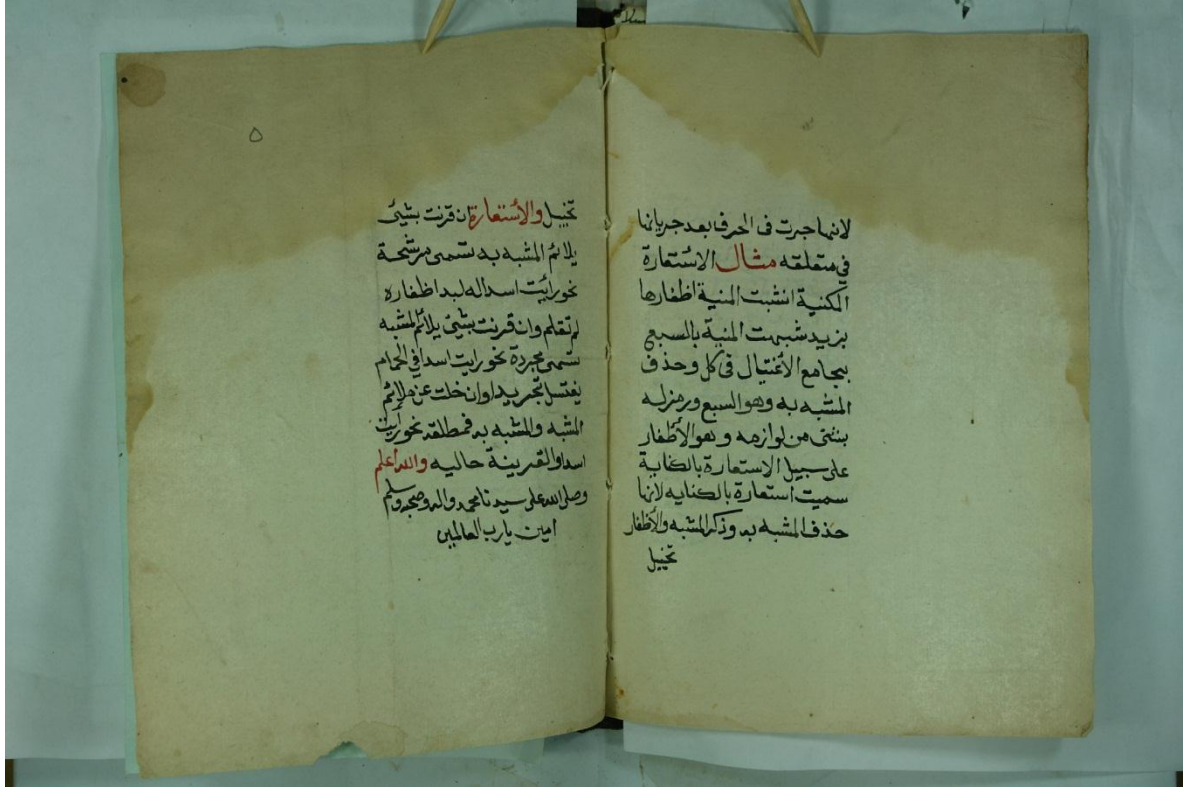 لانها جرت في الحرف بعد جريانها
في متعلقه مثال الاستعارة
المكنية انشبت المنية اظفارها
بزيد شبهت المنية بالسبع
بجامع الأغتيال في كل وحذف
المشبه به وهو السبع ورمز له
بشئ من لوازمه وهو الأظفار
على سبيل الاستعارة بالكناية
سميت استعارة بالكنايه لانها
حذف المشبه به وذكر المشبه والأظفار
تخييل
٥
تخييل والأستعارة ان قرنت بشئ
يلائم المشبه به تسمى مرشحة
نحو رأيت اسدا له لبد اظفاره
لم تقلم وان قرنت بشئ يلائم المشبه
تسمى مجردة نحو رايت اسدا في الحمام
يغتسل تجريدا وان خلت عن ملائم
المشبه والمشبه به فمطلقه نحو رأيت
اسدا والقرينة حاليه والله أعلم
وصلى الله على سيدنا محمد واله وصحبه وسلم
امين يا رب العالمين